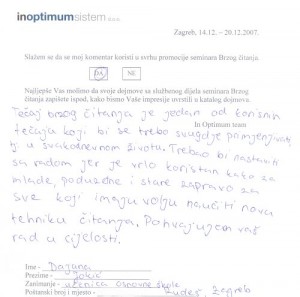 inoptimumsistem d.o.o.
Zagreb, 14.12. – 20.12.2007.
Slažem se da se moj komentar koristi u svrhu promocije seminara Brzog čitanja.
DA NE
Najljepše Vas molimo da svoje dojmove sa službenog dijela seminara Brzog
čitanja zapišete ispod, kako bismo Vaše impresije uvrstili u katalog dojmova.
In Optimum team
Tečaj brzog čitanja je jedan od korisnih
tečaja koji bi se trebo svugdje primjenjivati
tj u svakodnevnom životu. Trebao bi nastaviti
sa radom jer je vrlo koristan kako za
mlade, poduzetne i stare zapravo za
sve koji imaju volju naučiti novu
tehniku čitanja. Pohvaljujem vaš
rad u cijelosti.
Ime - Dajana
Prezime - Jokić
Zanimanje - učenica osnovne škole
Poštanski broj i mjesto - Rudeš, Zagreb